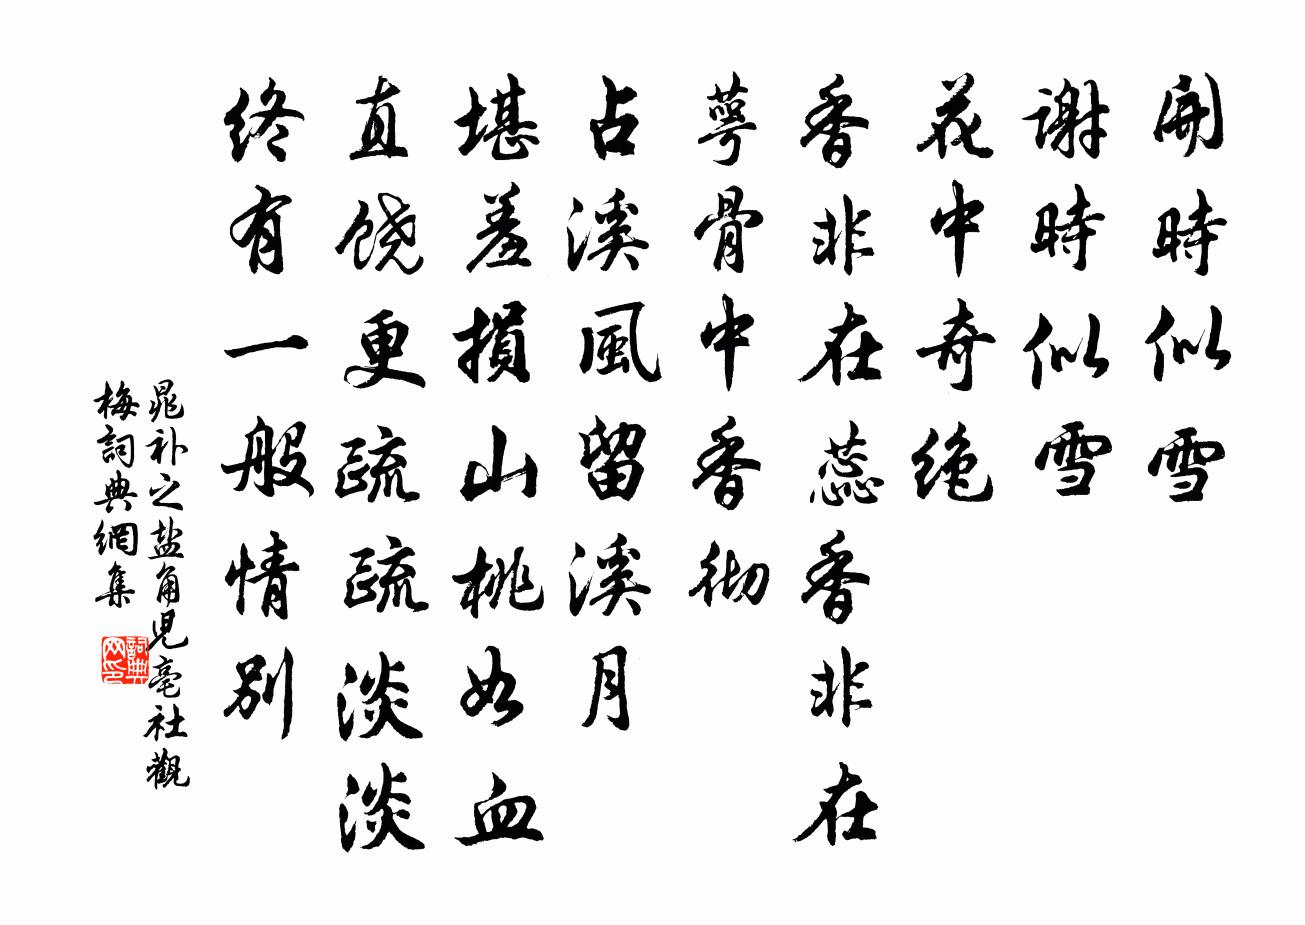 開時似雪
謝時似雪
花中奇绝
香非在蕊香非在
萼骨中香彻
占溪風留溪月
堪羞損山桃如血
直饶更疏疏淡淡
终有一般情别
晁补之盐角児亳社觀
梅詞典網集
詞典网印